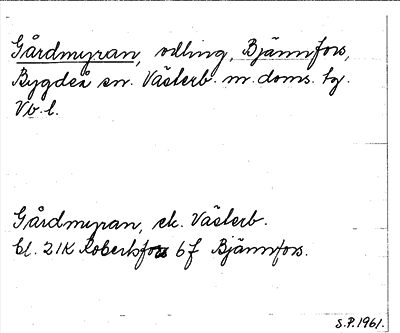 Gårdmyran, odling, Bjännfors,
Bygdeå sn. Västerb. m. doms. tg.
Vb. l.
Gårdmyran, ek. Västerb.
bl. 21K Robertsfors 6f Bjännfors.
S.P. 1961.